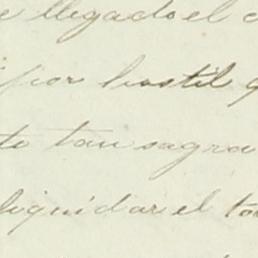 e llegado el c
por hostil q
te tan sagra
liquidar el to